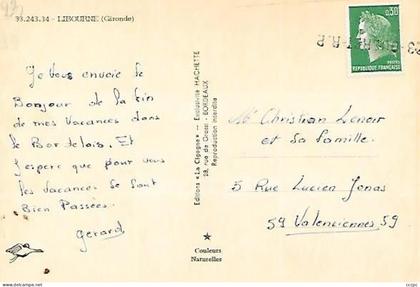 33.243.34 - LIBOURNE (Gironde)
Je vous envoie le
Bonjour de la fin
de mes vacances dans
le Bordelais. Et
j'espère que pour vous
les vacances se sont
Bien Passées.
Gérard
Editions «La Cigogne» - Exclusivité HACHETTE
28, rue de Grassi - BORDEAUX
Reproduction interdite
Couleurs
Naturelles
0,30
REPUBLIQUE FRANÇAISE
Mr Christian Lenoir
et sa famille.
5 Rue Lucien Jonas
59 Valenciennes 59